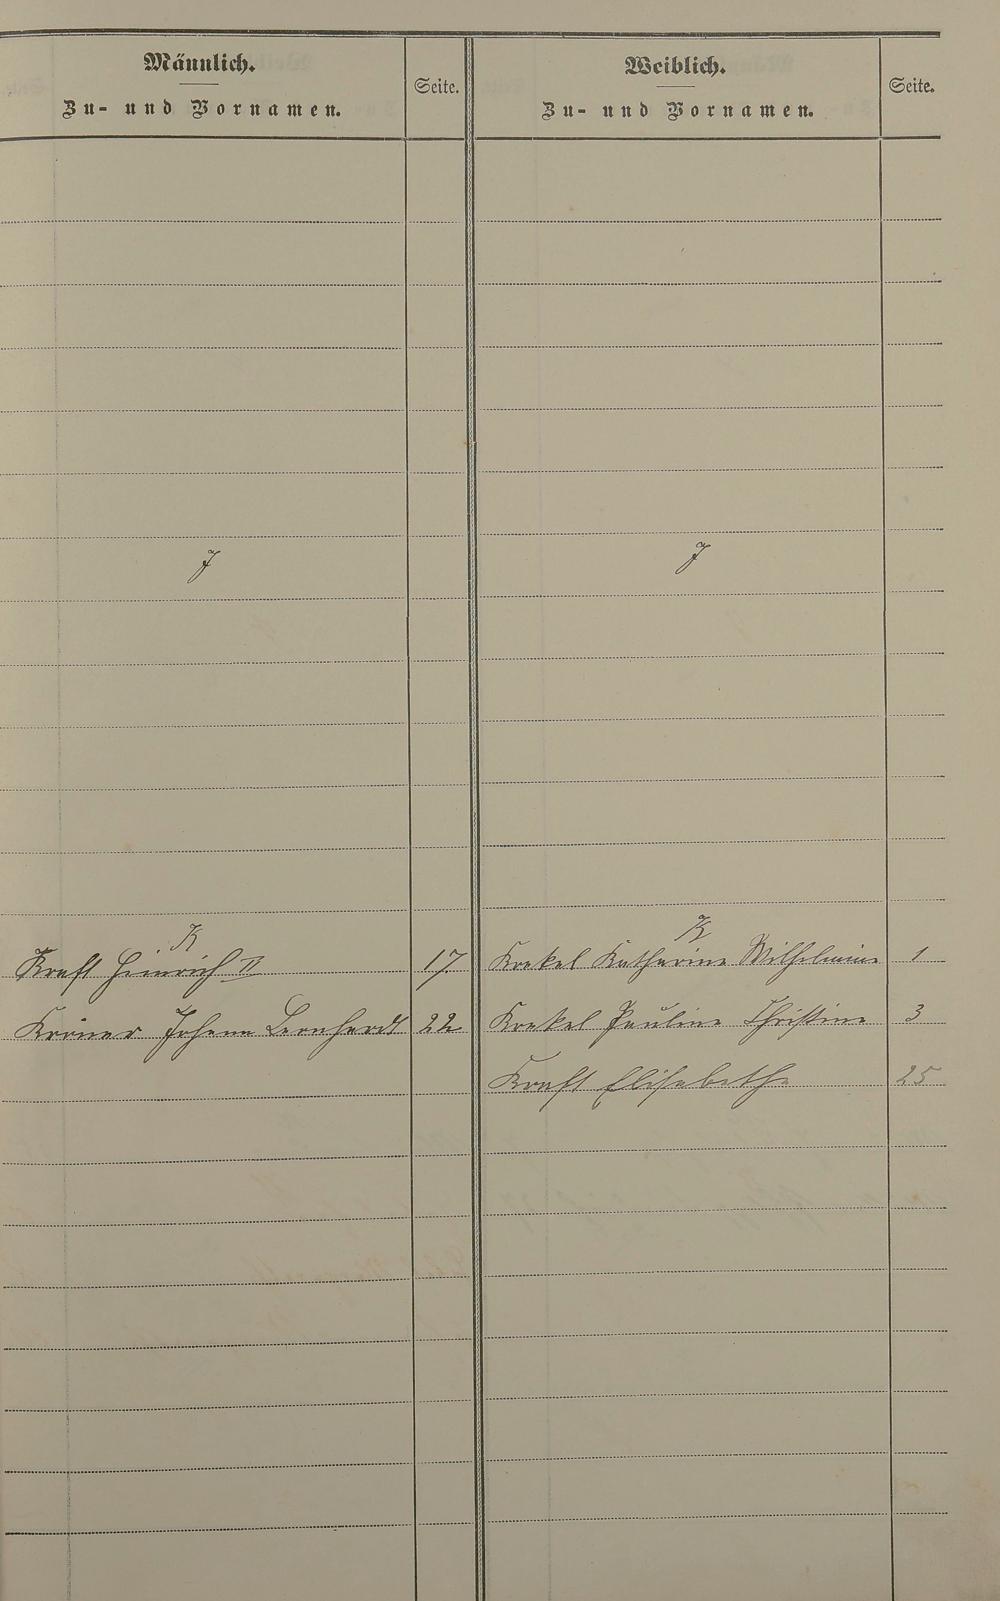 Männlich.
Zu- und Vornamen.
Seite.
Weiblich.
Zu- und Vornamen.
Seite.
J
J
K
K
Kraft Heinrich II 17.
Krekel Katharine Wilhelmine 1
Kröner Johann Bernhardt 22
Krekel Pauline Christine 3
Kraft Elisabethe 25